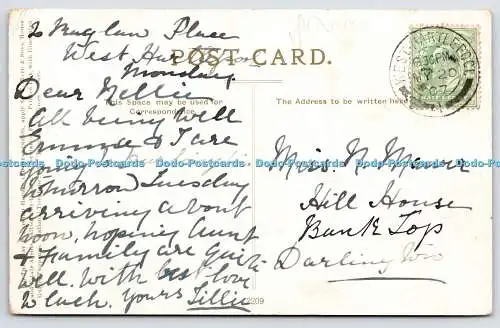 2 Place
West
Monday
POST CARD.
Dear Nellie
This Space may be used for
Correspondence
The Address to be written here
All being well
Emma & I are
going
tomorrow Tuesday
arriving about
noon, hoping Aunt
& Family are quite
well. With best love
to each. Yours Tillie
Miss. N.
Hill House
Bank Top
Darlington
WEST HARTLEPOOL
6 30 PM
MY 20
07
2209
Dodo-Postcards Dodo-Postcards Dodo-Postcards Dodo-Postcards Dodo-Postcards